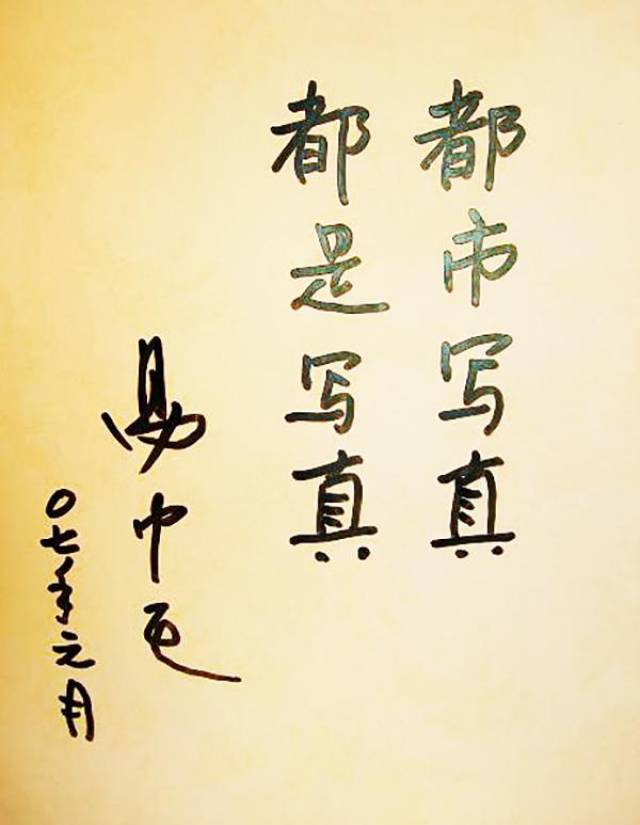 都市写真
都是写真
易中天
〇七年元月